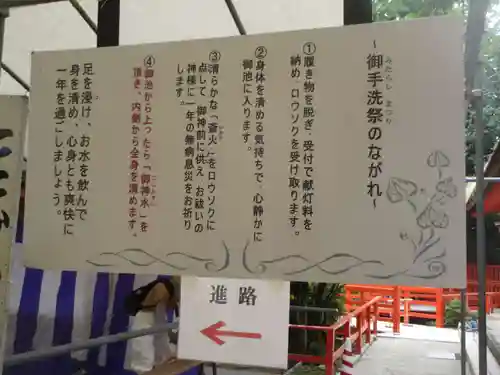 ～御手洗祭のながれ～
みたらし まつり
①履き物を脱ぎ、受付で献灯料を
納め、ロウソクを受け取ります。
②身体を清める気持ちで、心静かに
御池に入ります。
③清らかな「斎火」をロウソクに
点して、御神前に供え、お祓いの
神様に一年の無病息災をお祈り
します。
④御池から上ったら「御神水」を
頂き、内側から全身を清めます。
足を浸け、お水を飲んで
身を清め、心身とも爽快に
一年を過ごしましょう。
進路